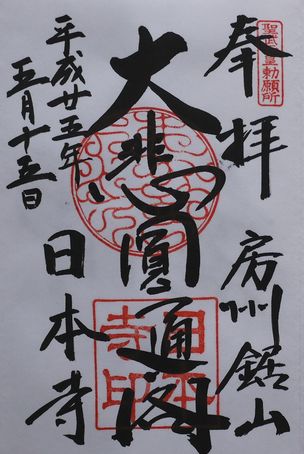 聖武天皇勅願所
奉拝
房州鋸山
大悲心圓通閣
平成廿五年
五月十五日
日本寺
日本寺印